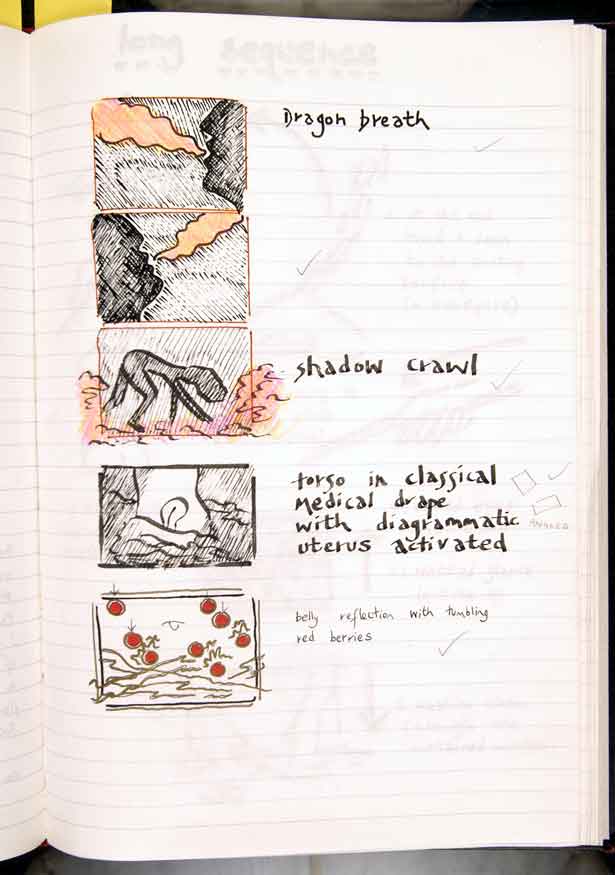 Dragon breath
shadow crawl
torso in classical
Medical drape
with diagrammatic
uterus activated
belly reflection with tumbling
red berries